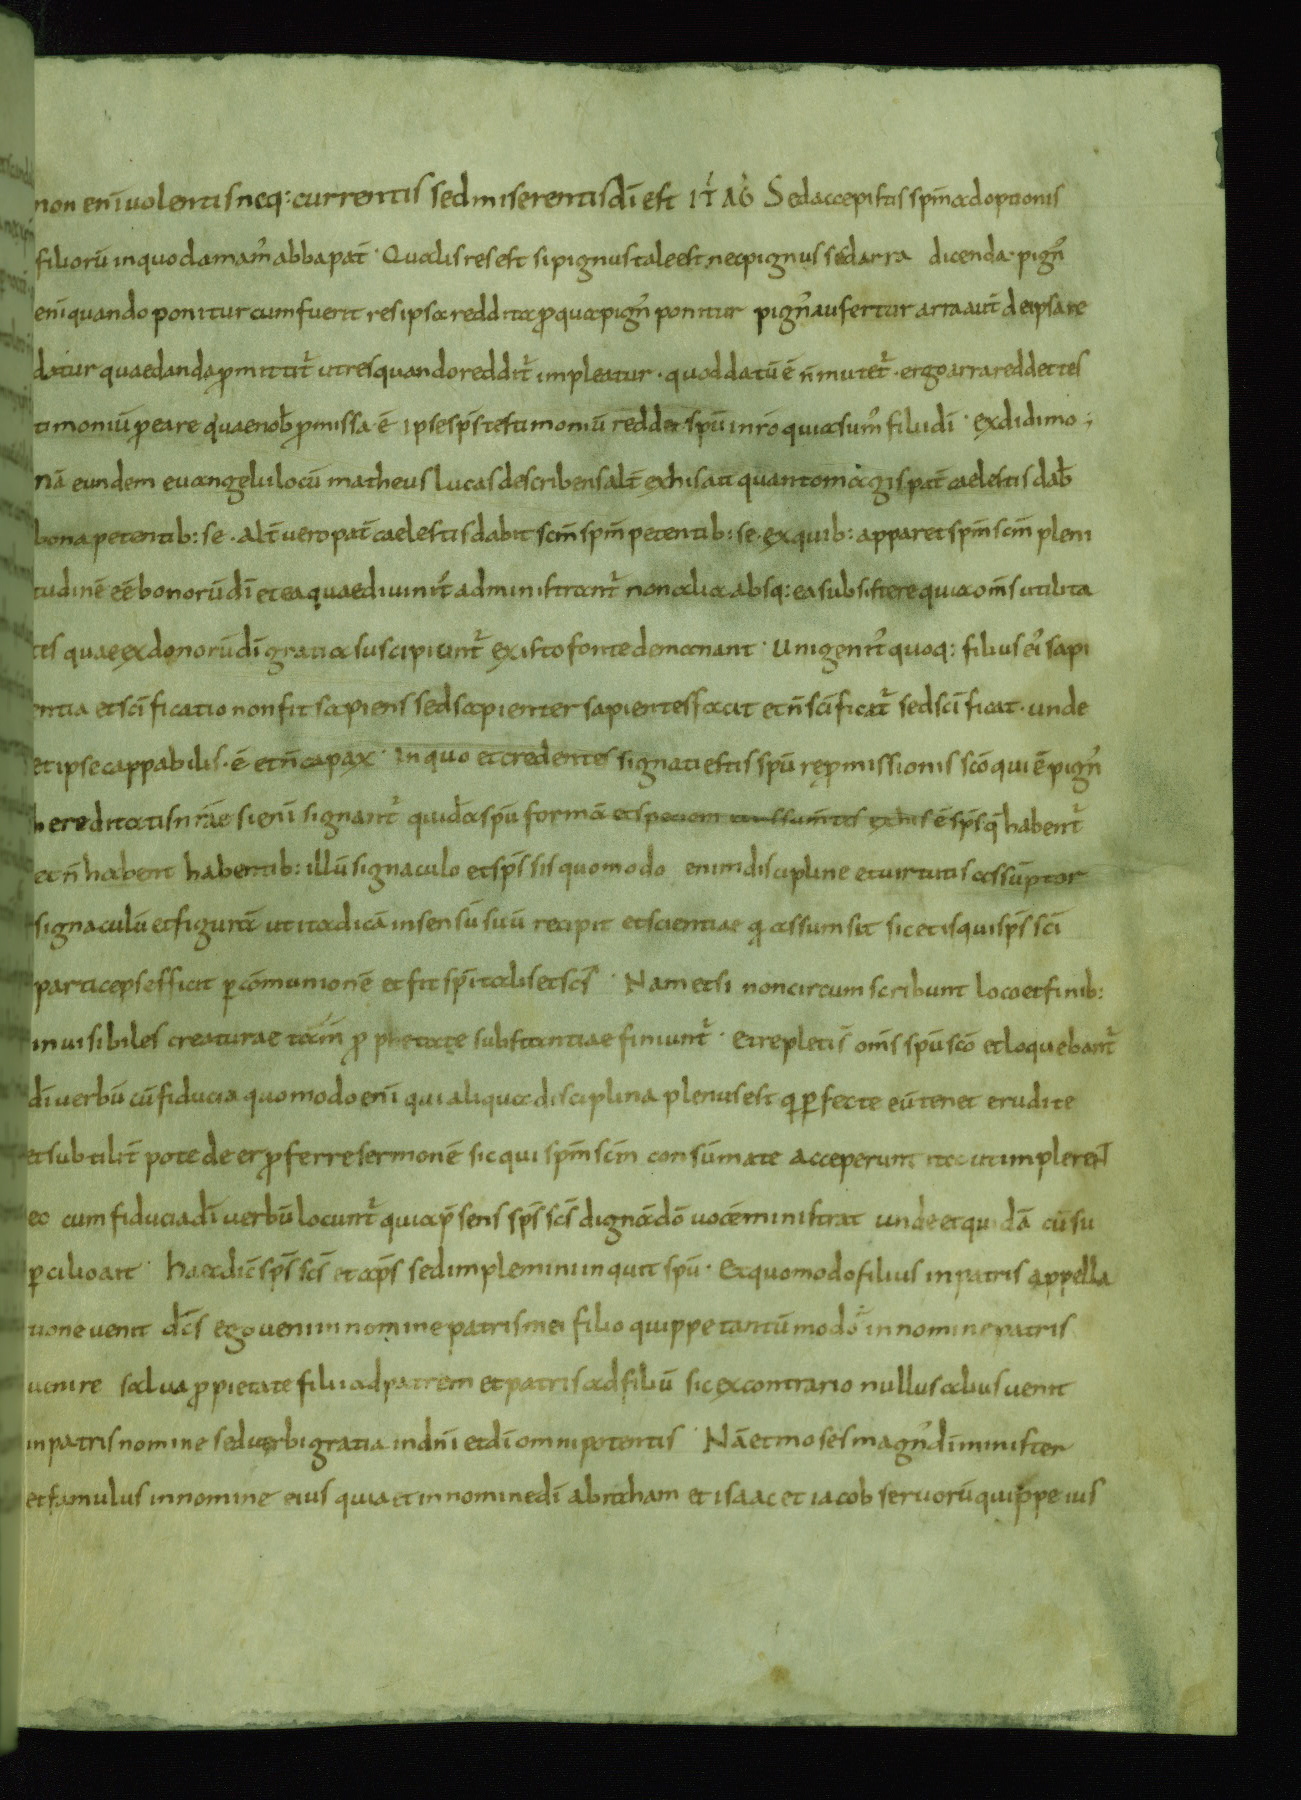 non enī uolentis neq: currentis sed miserentis dī est IT AG Sed accepistis spm̄ adoptionis
filiorū in quo clamam᾽ abba pat̄ · Qualis res est si pignus tale est nec pignus sed arra dicenda · pign᾽
enī quando ponitur cum fuerit res ipsa reddita ꝓ qua pign᾽ ponitur pign᾽ aufertur arra aut̄ de ipsa re
datur quae danda ꝓmittit᾽ ut res quando reddit᾽ impleatur · quod datū ē n̄ mutet᾽ · ergo arra reddet tes
timoniū ꝓ ea re quae nob̄ ꝓmissa ē ipse sp̄s testimoniū reddet spū inr̄o quia sum᾽ filii dī · ex didimo ;
nā eundem euangelii locū matheus lucas describens alt̄ ex his ait quanto magis pat̄ caelestis dab̄
bona petentib: se · alt̄ uero pat̄ caelestis dabit scm̄ spm̄ petentib: se · ex quib: apparet spm̄ scm̄ pleni
tudinē eē bonorū dī et ea quae diuinit᾽ administrant᾽ non alia absq: ea subsistere quia om̄s utilita
tes quae ex donorū dī gratia suscipiunt᾽ ex isto fonte demanant · Unigenit᾽ quoq: filius ei᾽ sapi
entia et scīficatio non fit sapiens sed sapienter sapientes facit et n̄ scīficat᾽ sed scīficat · unde
et ipse cappabilis · ē et n̄ capax · in quo et credentes signati estis spū reꝓmissionis scō qui ē pign᾽
hereditatis nr̄ae si enī signant᾽ quidā spū formā et speciem assumentes ex his ē sp̄s q̄ habent᾽
et n̄ habent habentib: illū signaculo et sp̄s sis quomodo enim discipline et uirtutis assūptor
signaculū et figurā ut ita dicā in sensū suū recipit et scientiae q assumsit sic et is qui sp̄s scī
particeps efficit ꝑ cōmunionē et fit spītalis et scs̄ · Nam et si non circumscribunt loco et finib:
inuisibiles creaturae tam̄ pro p̄etate substantiae finiunt᾽ · Et repleti s̄ om̄s spū scō et loquebant᾽
dī uerbū cū fiducia quomodo enī qui aliqua disciplina plenus est q ꝑfecte eū tenet erudite
et subtilit̄ pote de er ꝓferre sermonē sic qui spm̄ scm̄ consūmate acceperunt ita ut implerent
eo cum fiducia dī uerbū locunt᾽ quia p̄sens sp̄s scs̄ dignā dō uocē ministrat unde et quidā cū su
ꝑcilio ait · haec dic̄ sp̄s scs̄ et ap̄s sed implemini inquit spū · Ex quo modo filius in patris appella
tione uenit dc̄s ego ueni in nomine patris mei filio quippe tantū modo in nomine patris
uenire salua ꝓpietate filii ad patrem et patris ad filiū sic ex contrario nullus alius uenit
in patris nomine sed uerbi gratia in dn̄i et dī omnipotentis · Nā et moses magn᾽ dī minister
et famulus in nomine eius quia et in nomine dī abraham et isaac et iacob seruorū quippe ius